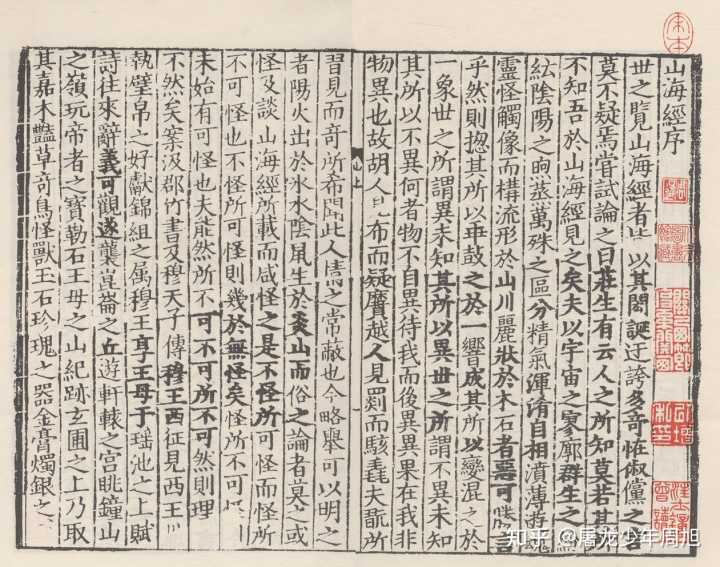 山海經序
世之覽山海經者皆以其閎誕迂誇多奇怪俶儻之言
莫不疑焉嘗試論之曰莊生有云人之所知莫若其所
不知吾於山海經見之矣夫以宇宙之寥廓群生之
紜陰陽之煦蒸萬殊之區分精氣渾淆自相濆薄遊魂
靈怪觸像而構流形於山川麗狀於木石者惡可勝言
乎然則揔其所以乖鼓之於一響成其所以變混之於
一象世之所謂異未知其所以異世之所謂不異未知
其所以不異何者物不自異待我而後異異果在我非
物異也故胡人見布而疑黂越人見罽而駭毳夫翫所
習見而奇所希聞此人情之常蔽也今略舉可以明之
者陽火出於氷水陰鼠生於炎山而俗之論者莫之或
怪及談山海經所載而咸怪之是不怪所可怪而怪所
不可怪也不怪所可怪則幾於無怪矣怪所不可
未始有可怪也夫能然所不可不可所不可然則理
不然矣案汲郡竹書及穆天子傳穆王西征見西王
執璧帛之好獻錦組之属穆王享王母于瑤池之上賦
詩往來辭義可觀遂襲崑崙之丘遊軒轅之宮眺鐘山
之嶺玩帝者之寶勒石王母之山紀跡玄圃之上乃取
其嘉木豔草奇鳥怪獸玉石珍瑰之器金膏燭銀之
知乎 @屠龙少年周旭